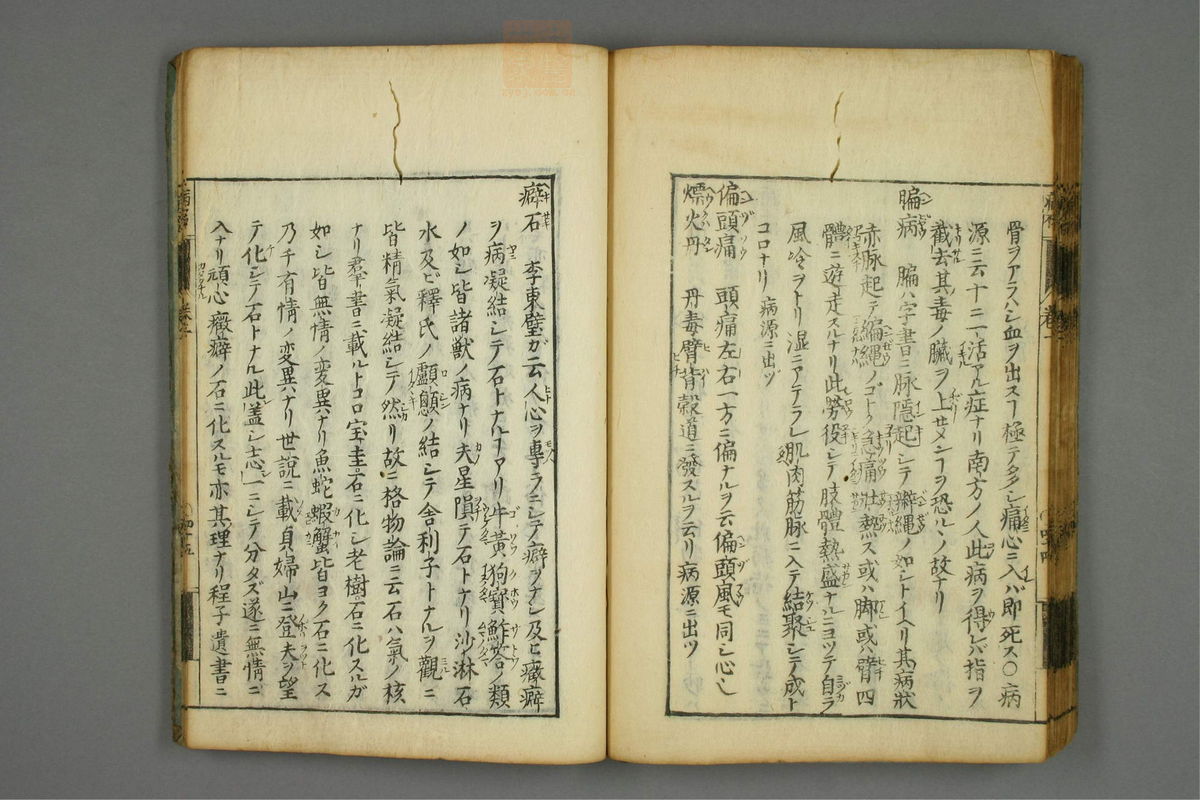 骨ヲアラハシ血ヲ出スヿ極テ多シ痛心ニ入バ即死ス〇病
源ニ云十ニ一活アル症ナリ南方ノ人此病ヲ得レバ指ヲ
截去其毒ノ臓ヲ上せメンヿヲ恐ルヽノ故ナリ
㿭病 㿭ハ字書ニ脉隱起シテ辮繩ノ如シトイヘリ其病狀
赤脉起テ編縄ノゴトク急痛壯熱ス或ハ脚或ハ臂四
體ニ遊走スルナリ此勞役シテ肢體熱盛ナルニヨツテ自ラ
風冷ヲトリ湿ニアテラレ肌肉筋脉ニ入テ結聚シテ成ト
コロナリ 病源ニ出ヅ
偏頭痛 頭痛左右一方ニ偏ナルヲ云偏頭風モ同シ心シ
熛火丹 丹毒臂背穀道ニ發スルヲ云リ病源ニ出ツ
癖石 李東璧ガ云人心ヲ專ラニシテ癖ヲナシ及ヒ癥癖
ヲ病凝結シテ石トナルヿアリ牛黃狗寶鮓荅ノ類
ノ如シ皆諸獸ノ病ナリ夫星隕テ石トナリ沙淋石
水及ヒ釋氏ノ顱顖ノ結シテ舍利子トナルヲ觀ニ
皆精氣凝結シテ然リ故ニ格物論ニ云石ハ氣ノ核
ナリ羣書ニ載ルトコロ宝圭石ニ化シ老樹石ニ化スルガ
如シ皆無情ノ変異ナリ魚蛇蝦蟹皆ヨク石ニ化ス
乃チ有情ノ変異ナリ世說ニ載貞婦山ニ登夫ヲ望
テ化シテ石トナル此蓋シ志一ニシテ分タズ遂ニ無情ニ
入ナリ頑心癥癖ノ石ニ化スルモ亦其理ナリ程子遺書ニ